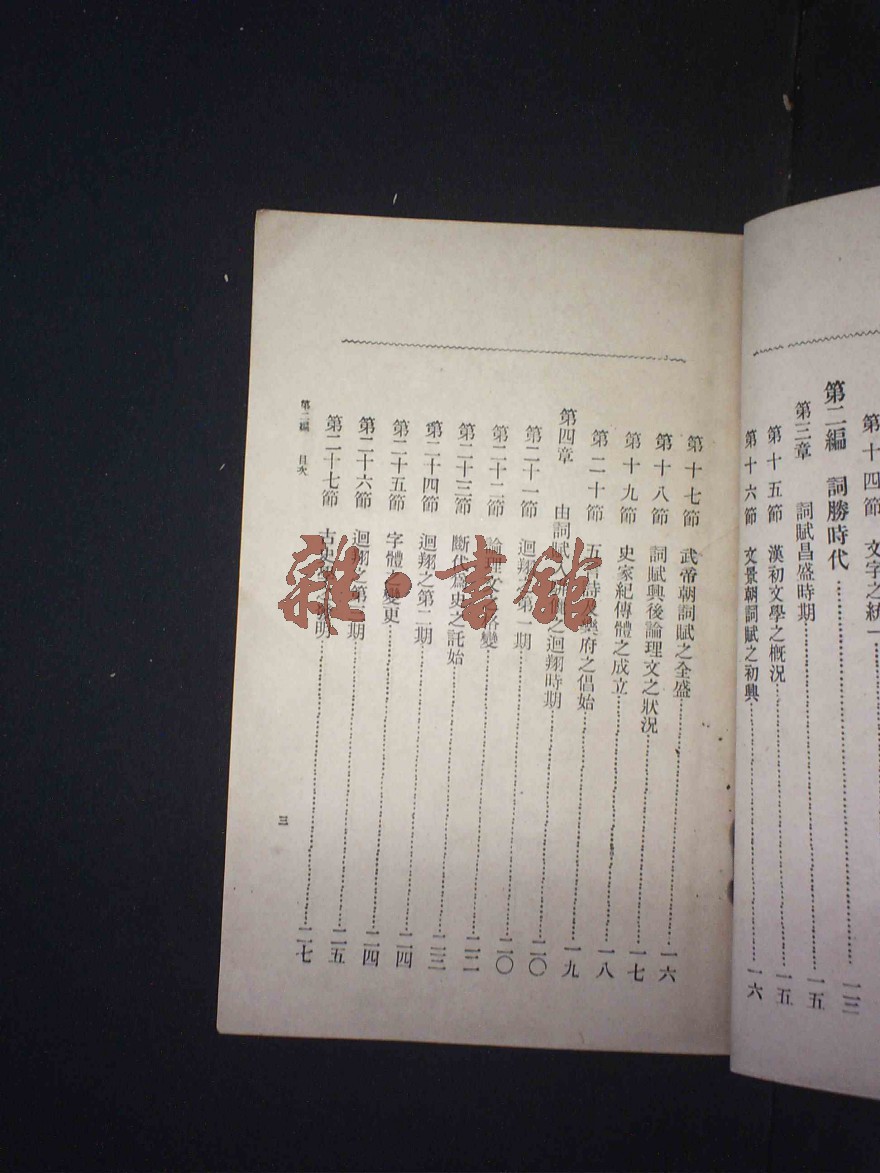 第十四節 文字之統一
第二編 詞勝時代 一三
第三章 詞賦昌盛時期 一五
第十五節 漢初文學之概況 一五
第十六節 文景朝詞賦之初興 一六
第十七節 武帝朝詞賦之全盛 一六
第十八節 詞賦興後論理文之狀況 一七
第十九節 史家紀傳體之成立 一八
第二十節 五言詩及樂府之倡始 一九
第四章 由詞賦 之迴翔時期 二〇
第二十一節 迴翔之第一期 二〇
第二十二節 論理文之 變 二二
第二十三節 斷代爲史之託始 二三
第二十四節 迴翔之第二期 二四
第二十五節 字體之變更 二四
第二十六節 迴翔之第三期 二五
第二十七節 古史 明 二七
第二編 目次
三
雜·書館